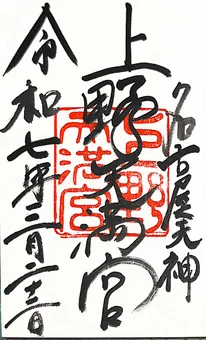 名古屋天神
上野天満宮
上野天満宮
令和七年二月二十二日